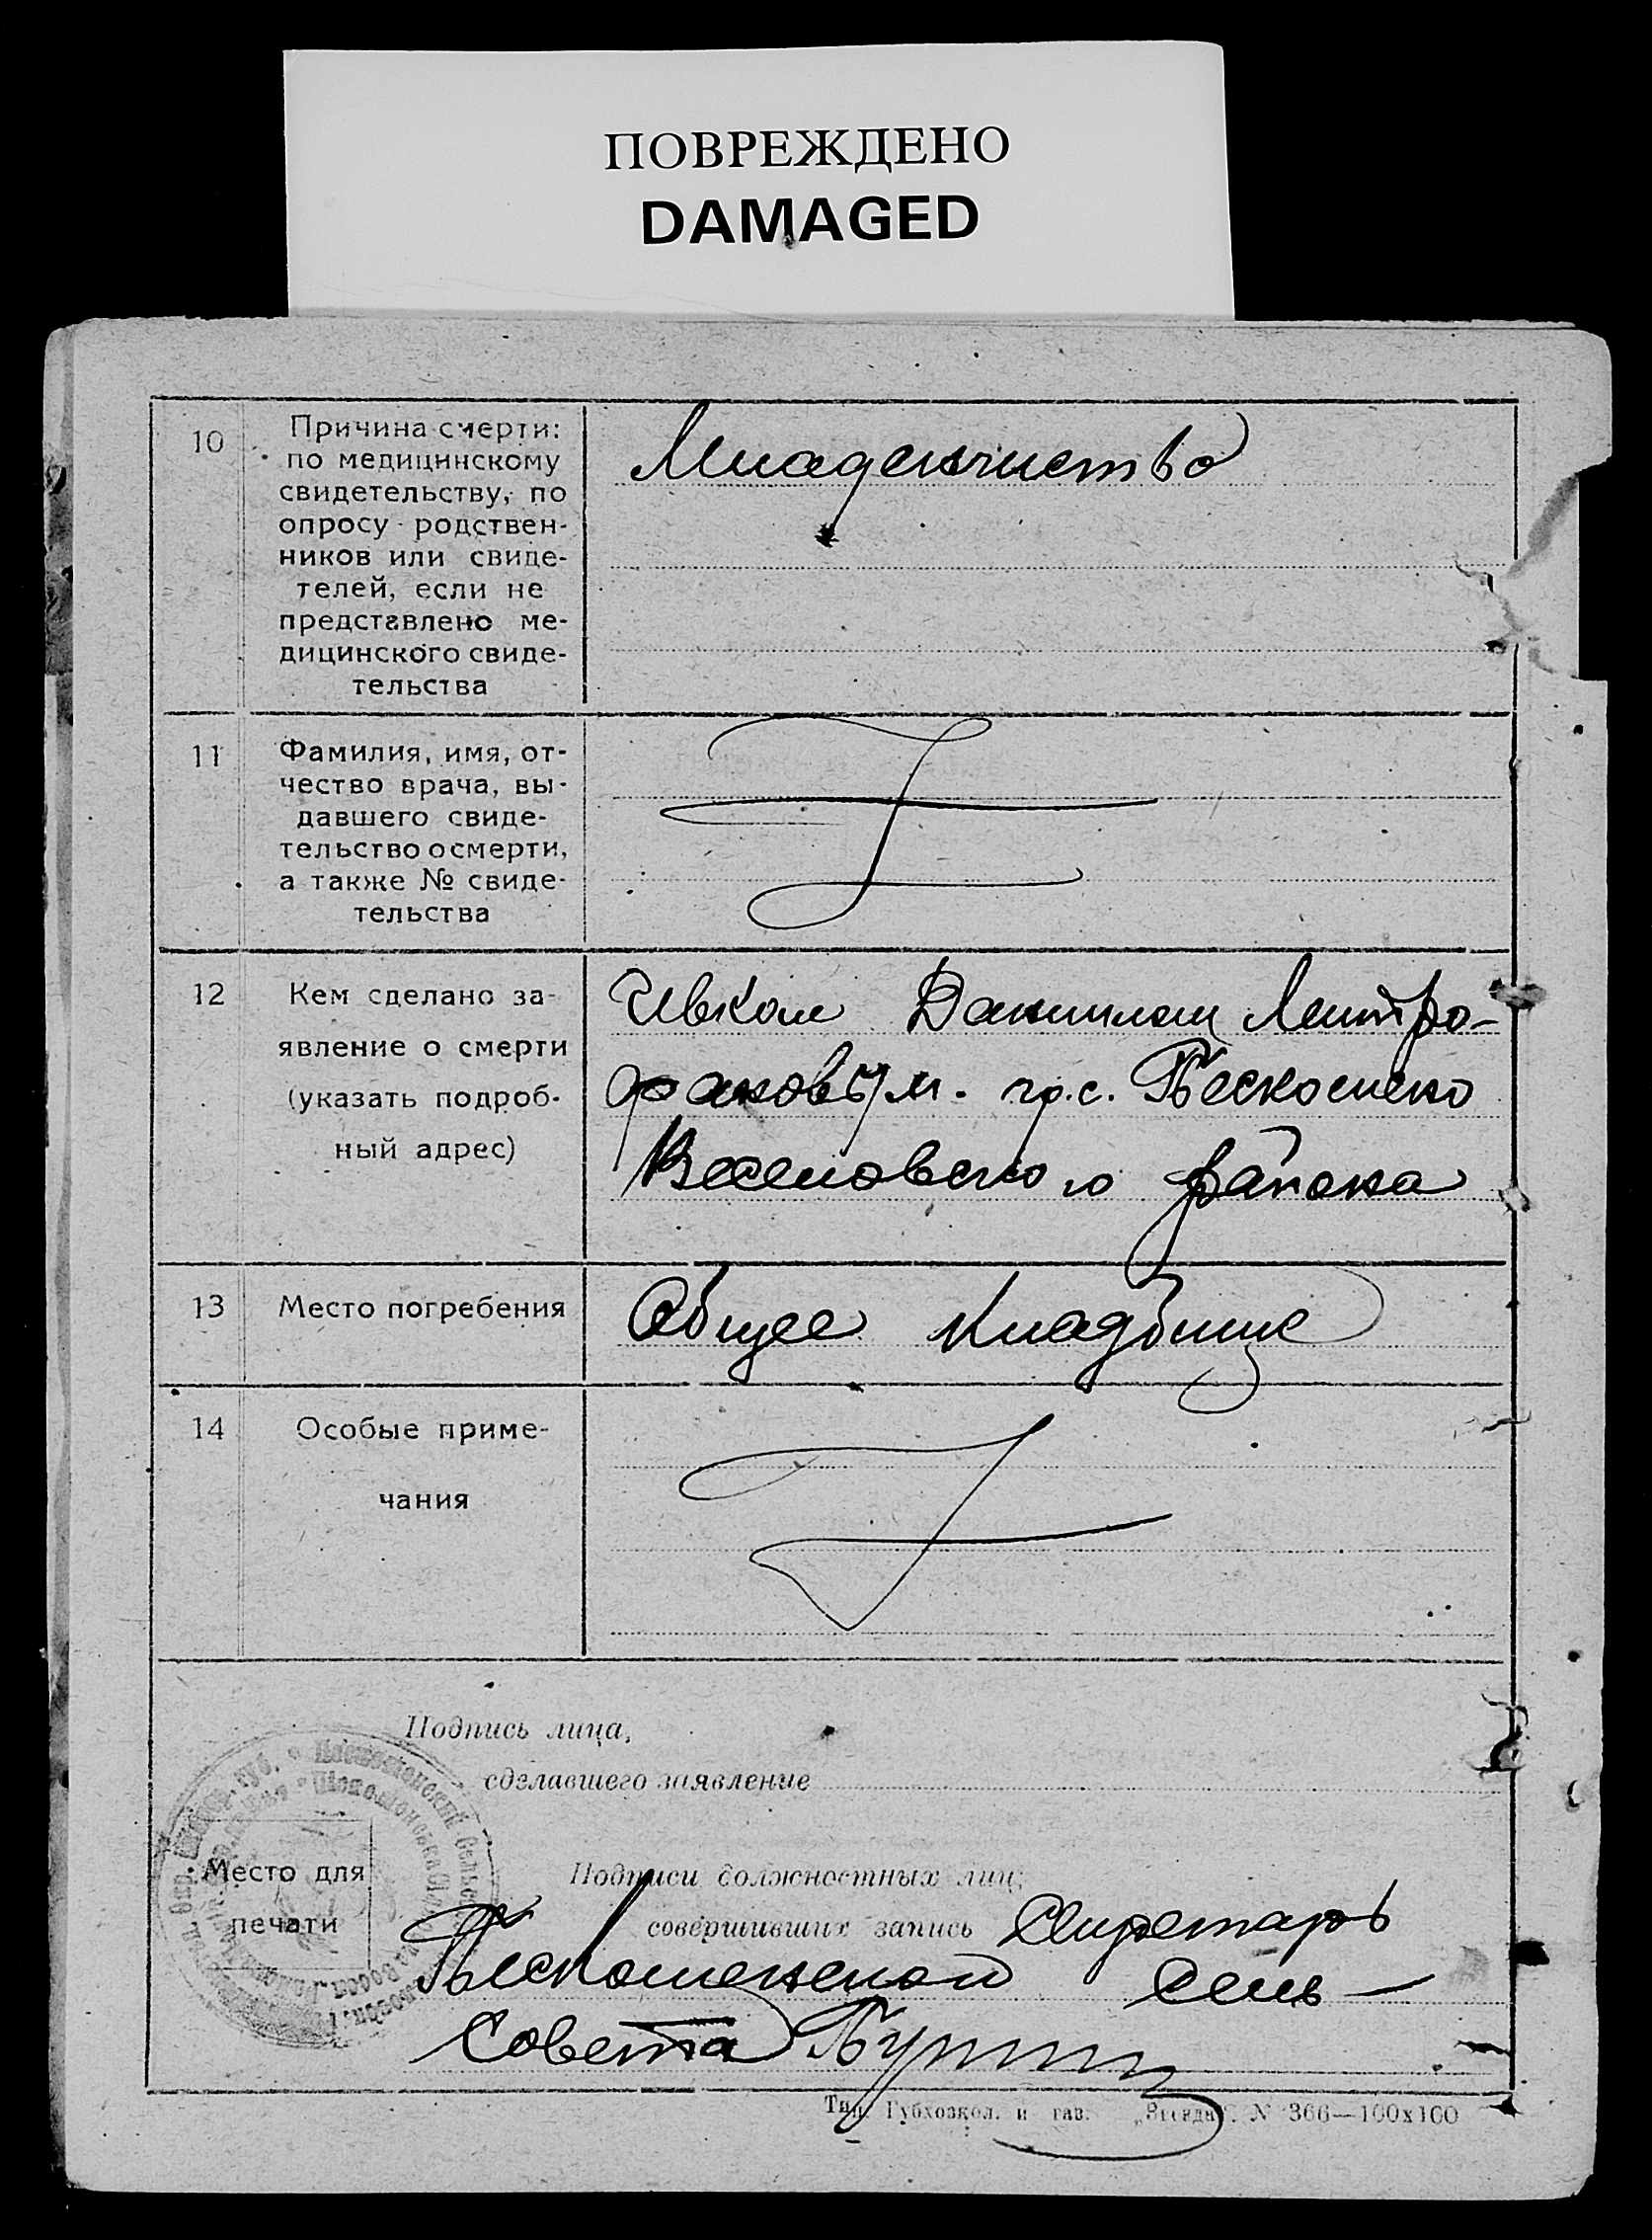 ПОВРЕЖДЕНО
DAMAGED
10
Причина смерти:
по медицинскому
свидетельству, по
опросу родствен-
ников или свиде-
телей, если не
представлено ме-
дицинского свиде-
тельства
Младенчиство
11
Фамилия, имя, от-
чество врача, вы-
давшего свиде-
тельство о смерти,
а также № свиде-
тельства
12
Кем сделано за-
явление о смерти
(указать подроб-
ный адрес)
Ивком Данилом Митро-
фановым. гр. с. Бескосиско
Веселовского района
13
Место погребения
Общее кладбище
14
Особые приме-
чания
Подпись лица,
сделавшего заявление
Место для
печати
Подписи должностных лиц,
совершивших запись Секретарь
Сель-
Совета
Тип. Губхозкол. и газ. „Звезда". № 366—100х100